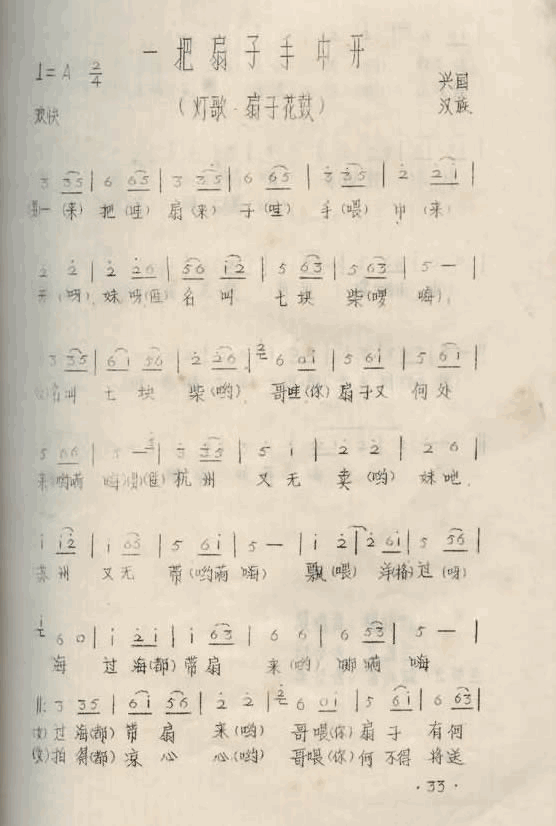 一把扇子手巾开
1=A 2/4
(灯歌·扇子花鼓)
兴国
汉族
欢快
3 35 | 6 65 | 3 35 | 6 65 | 3 35 | 2 21 |
(男)一(来) 把(哇) 扇(来) 子(哇) 手(喂) 巾(来)
2 2 | 2 26 | 56 12 | 5 63 | 5 63 | 5 — |
开(呀) 妹呀(匡) 名叫 七块 柴(嗳 嗨)
3 35 | 61 56 | 2 26 | 6 01 | 5 61 | 5 61 |
(女)名叫 七块 柴(哟) 哥哇(你) 扇子又 何处
5 66 | 5 — | 3 35 | 5 1 | 2 2 | 2 6 |
来(哟嗬 嗨)(男)(匡) 杭州 又无 卖(哟) 妹吔
1 12 | 1 65 | 5 61 | 5 — | 1 2 | 2 61 | 5 56 |
苏州 又无 带(哟嗬 嗨) 飘(喂) 洋(格)过(呀)
6 0 | 1 21 | 1 63 | 6 6 | 6 53 | 5 — |
海 过海(都) 带扇 来(哟) 哪嗬 嗨
‖: 3 35 | 61 56 | 2 2 | 6 01 | 5 61 | 6 63 |
(女)过海(都) 带扇 来(哟) 哥喂(你) 扇子 有何
(女)拍得(都) 凉心 心(哟) 哥喂(你) 何不得 将送
·33·